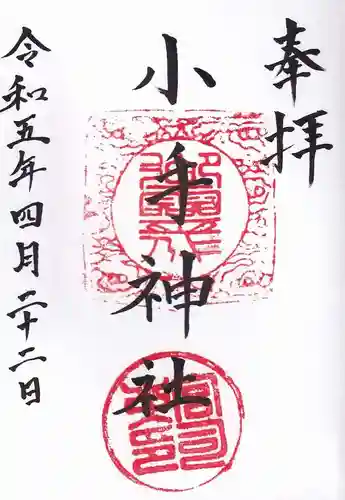 奉拝
小手神社
令和五年四月二十二日